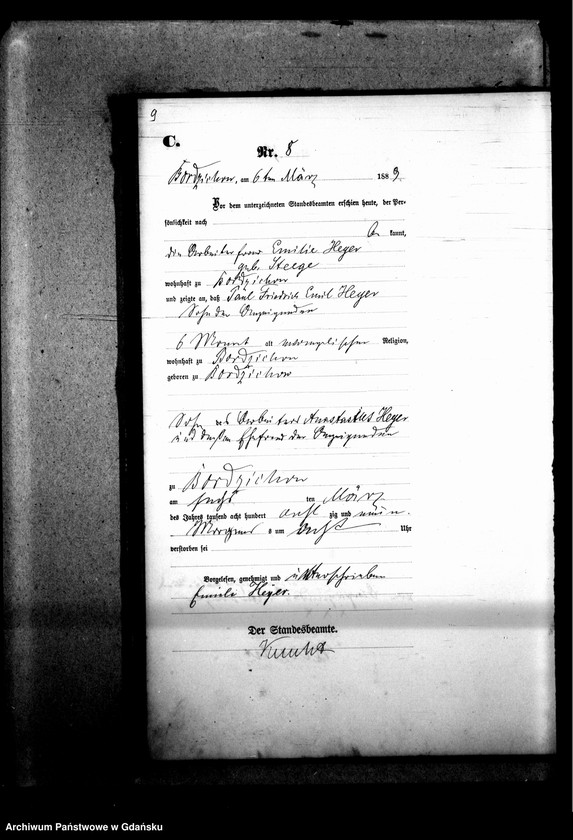 9
C.
Nr. 8
Bordzichow, am 6ten März 1889.
Vor dem unterzeichneten Standesbeamten erschien heute, der Per-
sönlichkeit nach
kannt,
die Arbeiterfrau Emilie Heyer
geb. Steege
wohnhaft zu Bordzichow
und zeigte an, daß Paul Friedrich Emil Heyer
Sohn der Anzeigenden
6 Monat alt evangelischer Religion,
wohnhaft zu Bordzichow
geboren zu Bordzichow
Sohn des Arbeiters Anastasius Heyer
und dessen Ehefrau der Anzeigenden
zu Bordzichow
am sechs ten März
des Jahres tausend acht hundert acht zig und neun
Morgens um acht Uhr
verstorben sei
Vorgelesen, genehmigt und unterschrieben
Emilie Heyer.
Der Standesbeamte.
Archiwum Państwowe w Gdańsku